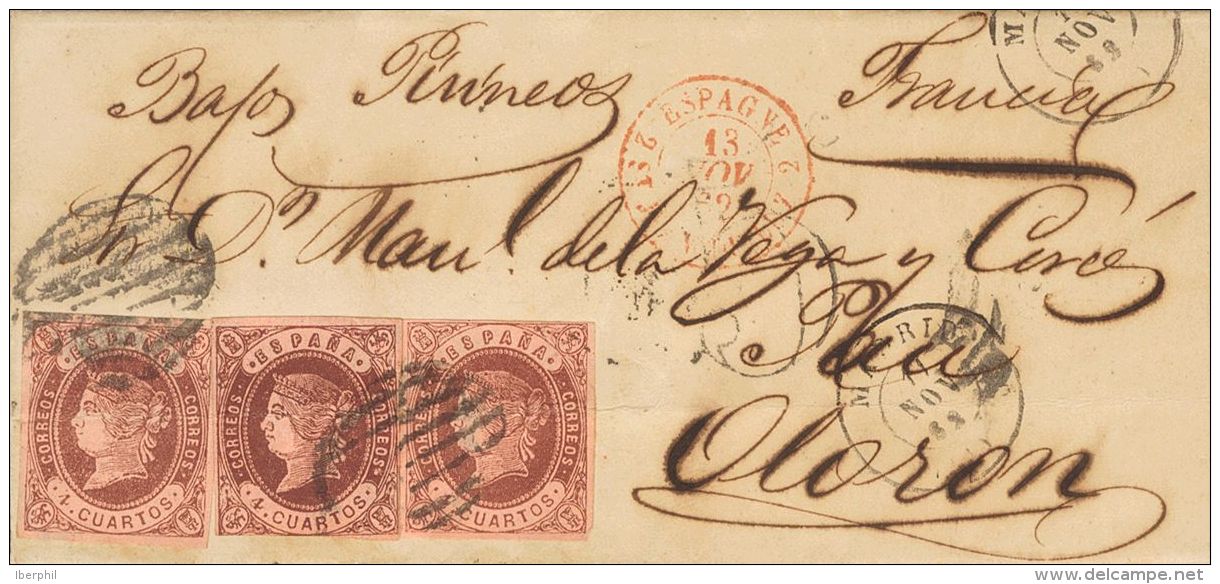 Bajos Pirineos Francia
Sr. Dn. Manl. de la Vega y Carcé
Pau
Oloron
ESPAGNE
13
NOV
MADRID
NOV
ESPAÑA
CORREOS
CORREOS
4 CUARTOS
ESPAÑA
CORREOS
CORREOS
4 CUARTOS
ESPAÑA
CORREOS
CORREOS
4 CUARTOS
Iberphil
www.delcampe.net